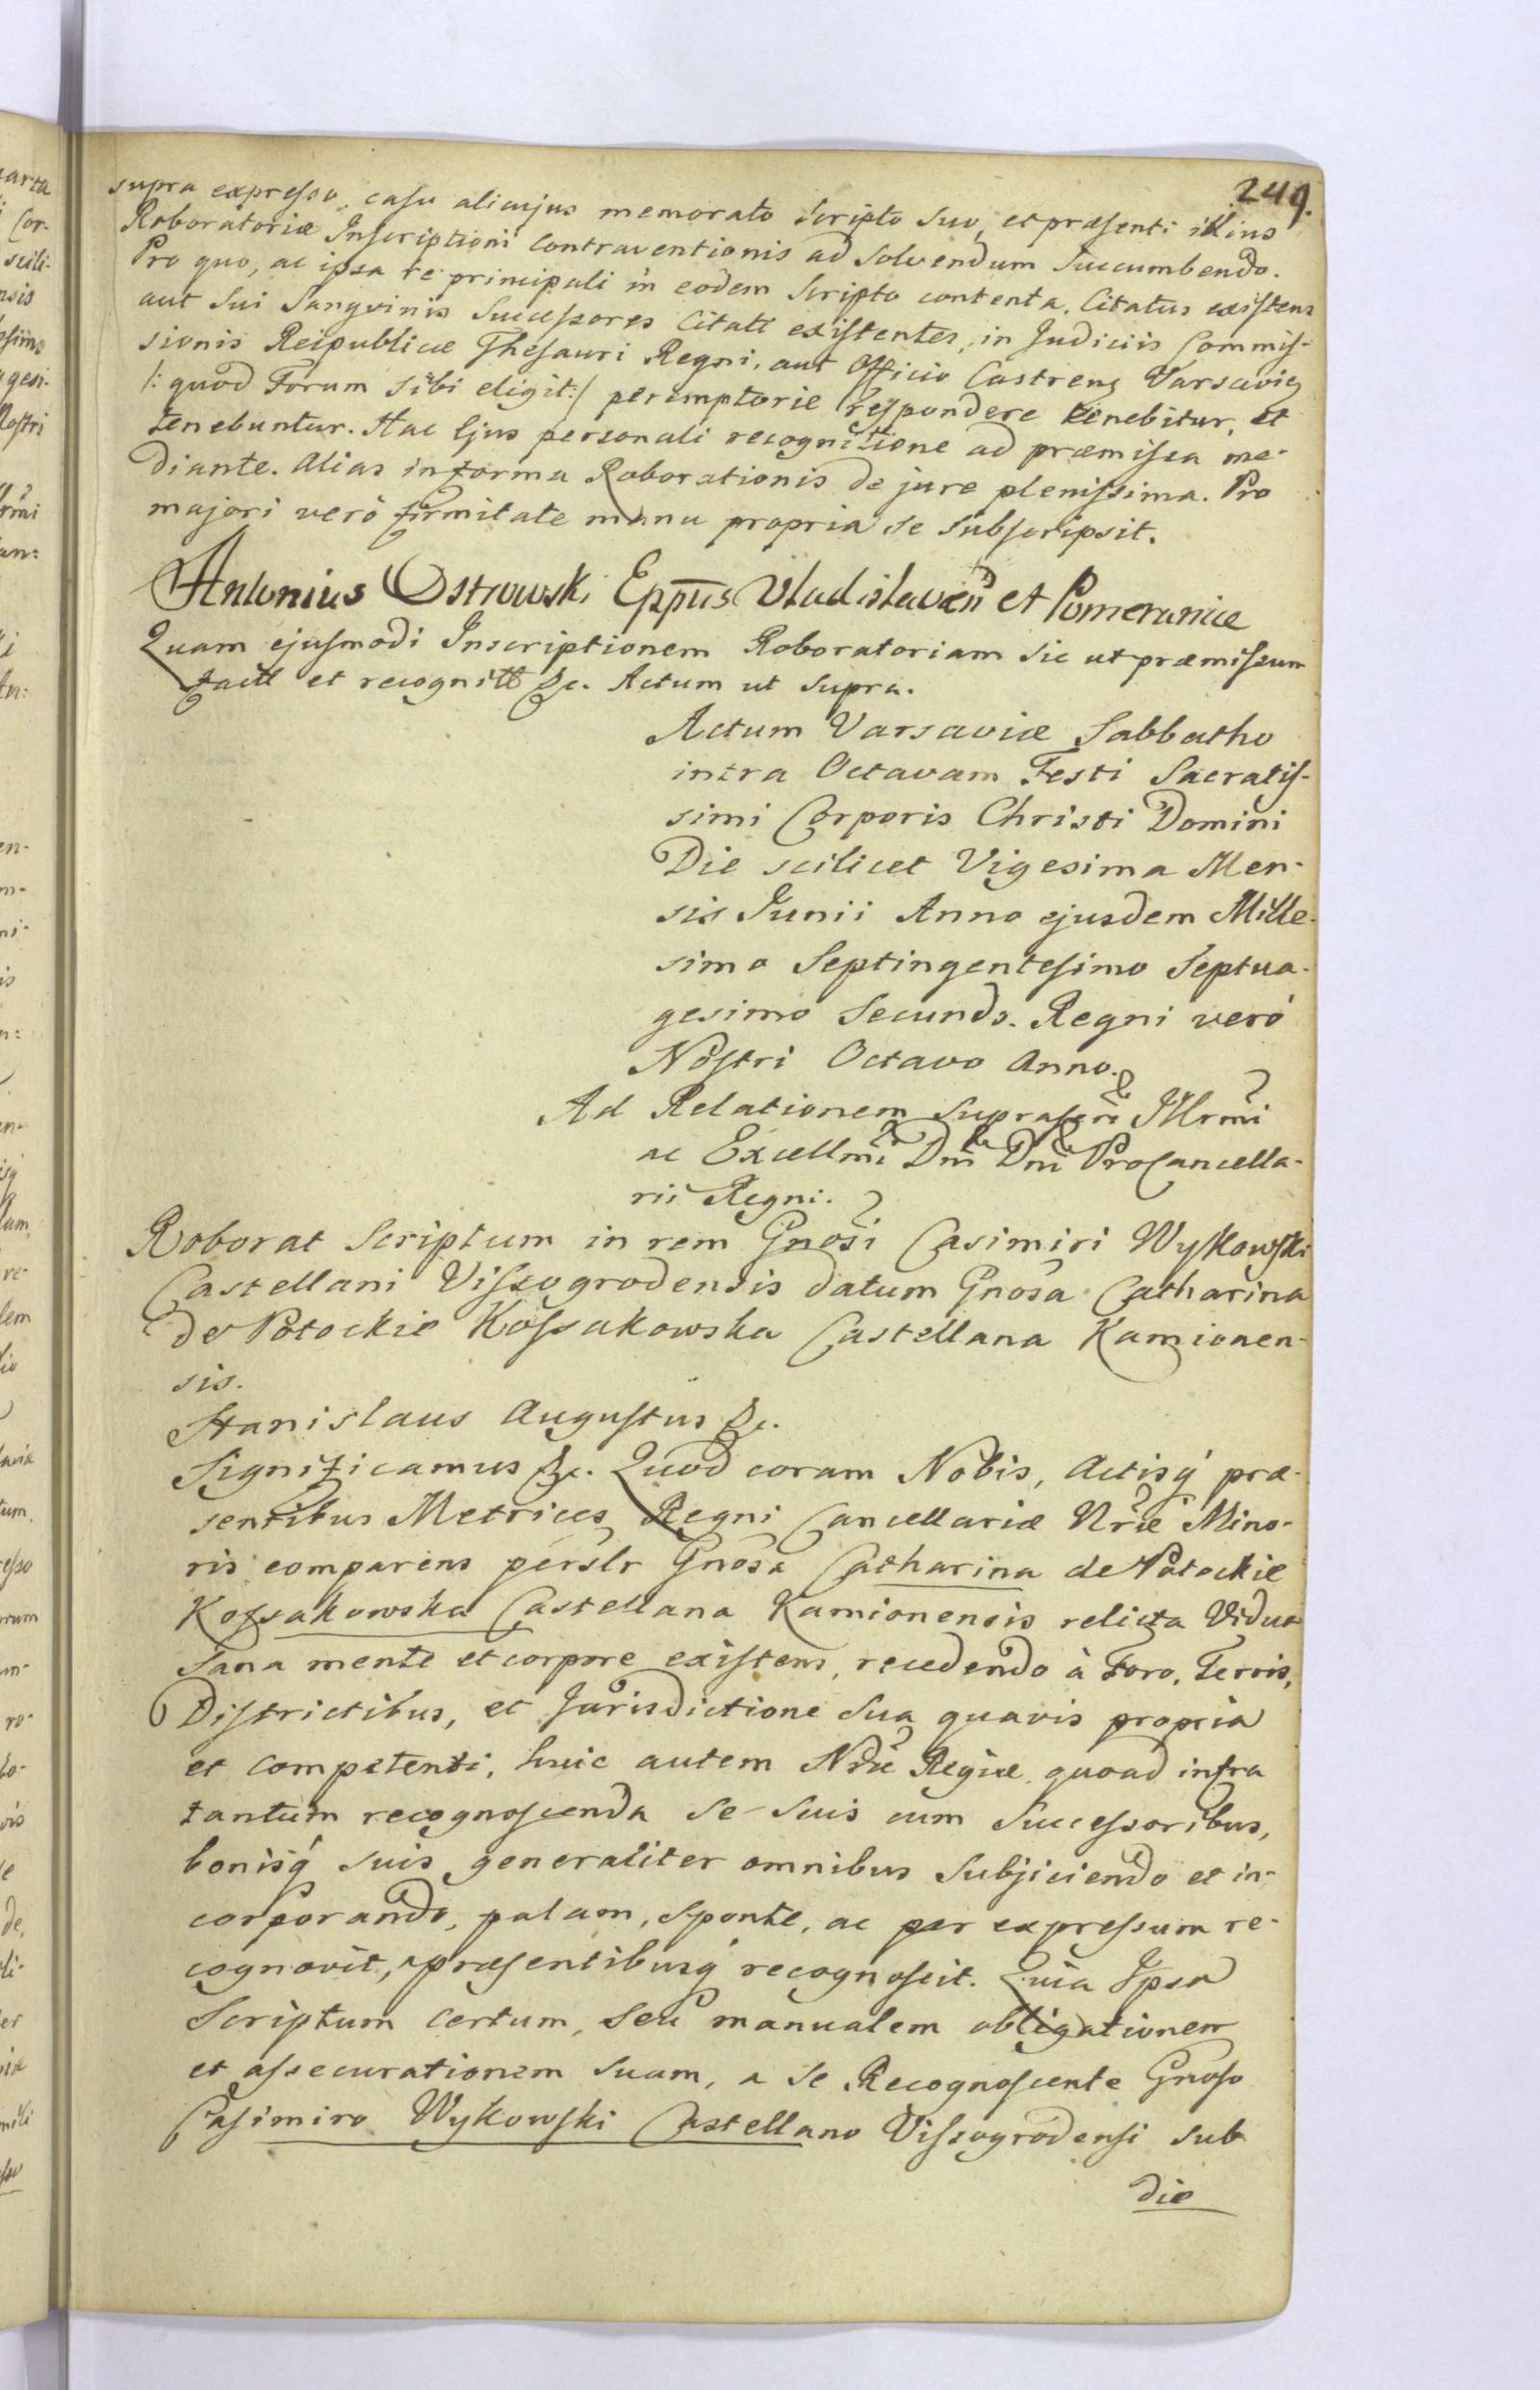 249.
supra expresso, casu alicujus memorato Scripto Suo, et præsenti illius
Roboratoriæ Inscriptioni Contraventionis ad Solvendum Succumbendo.
Pro quo, ac ipsa re principali in eodem Scripto contenta, Citatus existens
aut Sui Sangvinis Successores Citati existentes, in Judiciis Commis-
sionis Reipublicæ Thesauri Regni, aut Officio Castrens Varsavien
/: quod Forum sibi eligit :/ peremptorie respondere tenebitur, et
tenebuntur. Hac Ejus personali recognitione ad præmissa me-
diante. Alias in forma Roborationis de jure plenissima. Pro
majori verò firmitate manu propria se subscripsit.
Antonius Ostrowski Eppus Vladislavien et Pomeraniæ
Quam ejusmodi Inscriptionem Roboratoriam sic ut præmissum
factt et recognitt &c. Actum ut supra.
Actum Varsaviæ Sabbatho
intra Octavam Festi Sacratis-
simi Corporis Christi Domini
Die scilicet Vigesima Men-
sis Junii Anno ejusdem Mille-
simo Septingentesimo Septua-
gesimo Secundo. Regni verò
Nostri Octavo Anno.
Ad Relationem suprascri Illrmi
ac Excellmi Dni Dni ProCancella-
rii Regni.
Roborat Scriptum in rem Gnosi Casimiri Wykowski
Castellani Vissogrodensis datum Gnosa Catharina
de Potockie Kossakowska Castellana Kamionen-
sis.
Stanislaus Augustus &c.
Significamus &c. Quod coram Nobis, Actisq́ præ-
sentibus Metrices Regni Cancellariæ Nræ Mino-
ris comparens perslr Gnosa Catharina de Potockie
Kossakowska Castellana Kamionensis relicta Vidua
Sana mente et corpore existens, recedendo à Foro, Terris,
Districtibus, et Jurisdictione Sua quavis propria
et Competenti, huic autem Nræ Regiæ quoad infra
tantum recognoscenda Se Suis cum Successoribus,
bonisq́ suis generaliter omnibus Subjiciendo et in-
corporando, palam, sponte, ac per expressum re-
cognovit, præsentibusq́ recognoscit. Quia Ipsa
Scriptum Certum, Seu manualem obligationem
et assecurationem suam, a Se Recognoscente Gnoso
Casimiro Wykowski Castellano Vissogrodensi sub
die